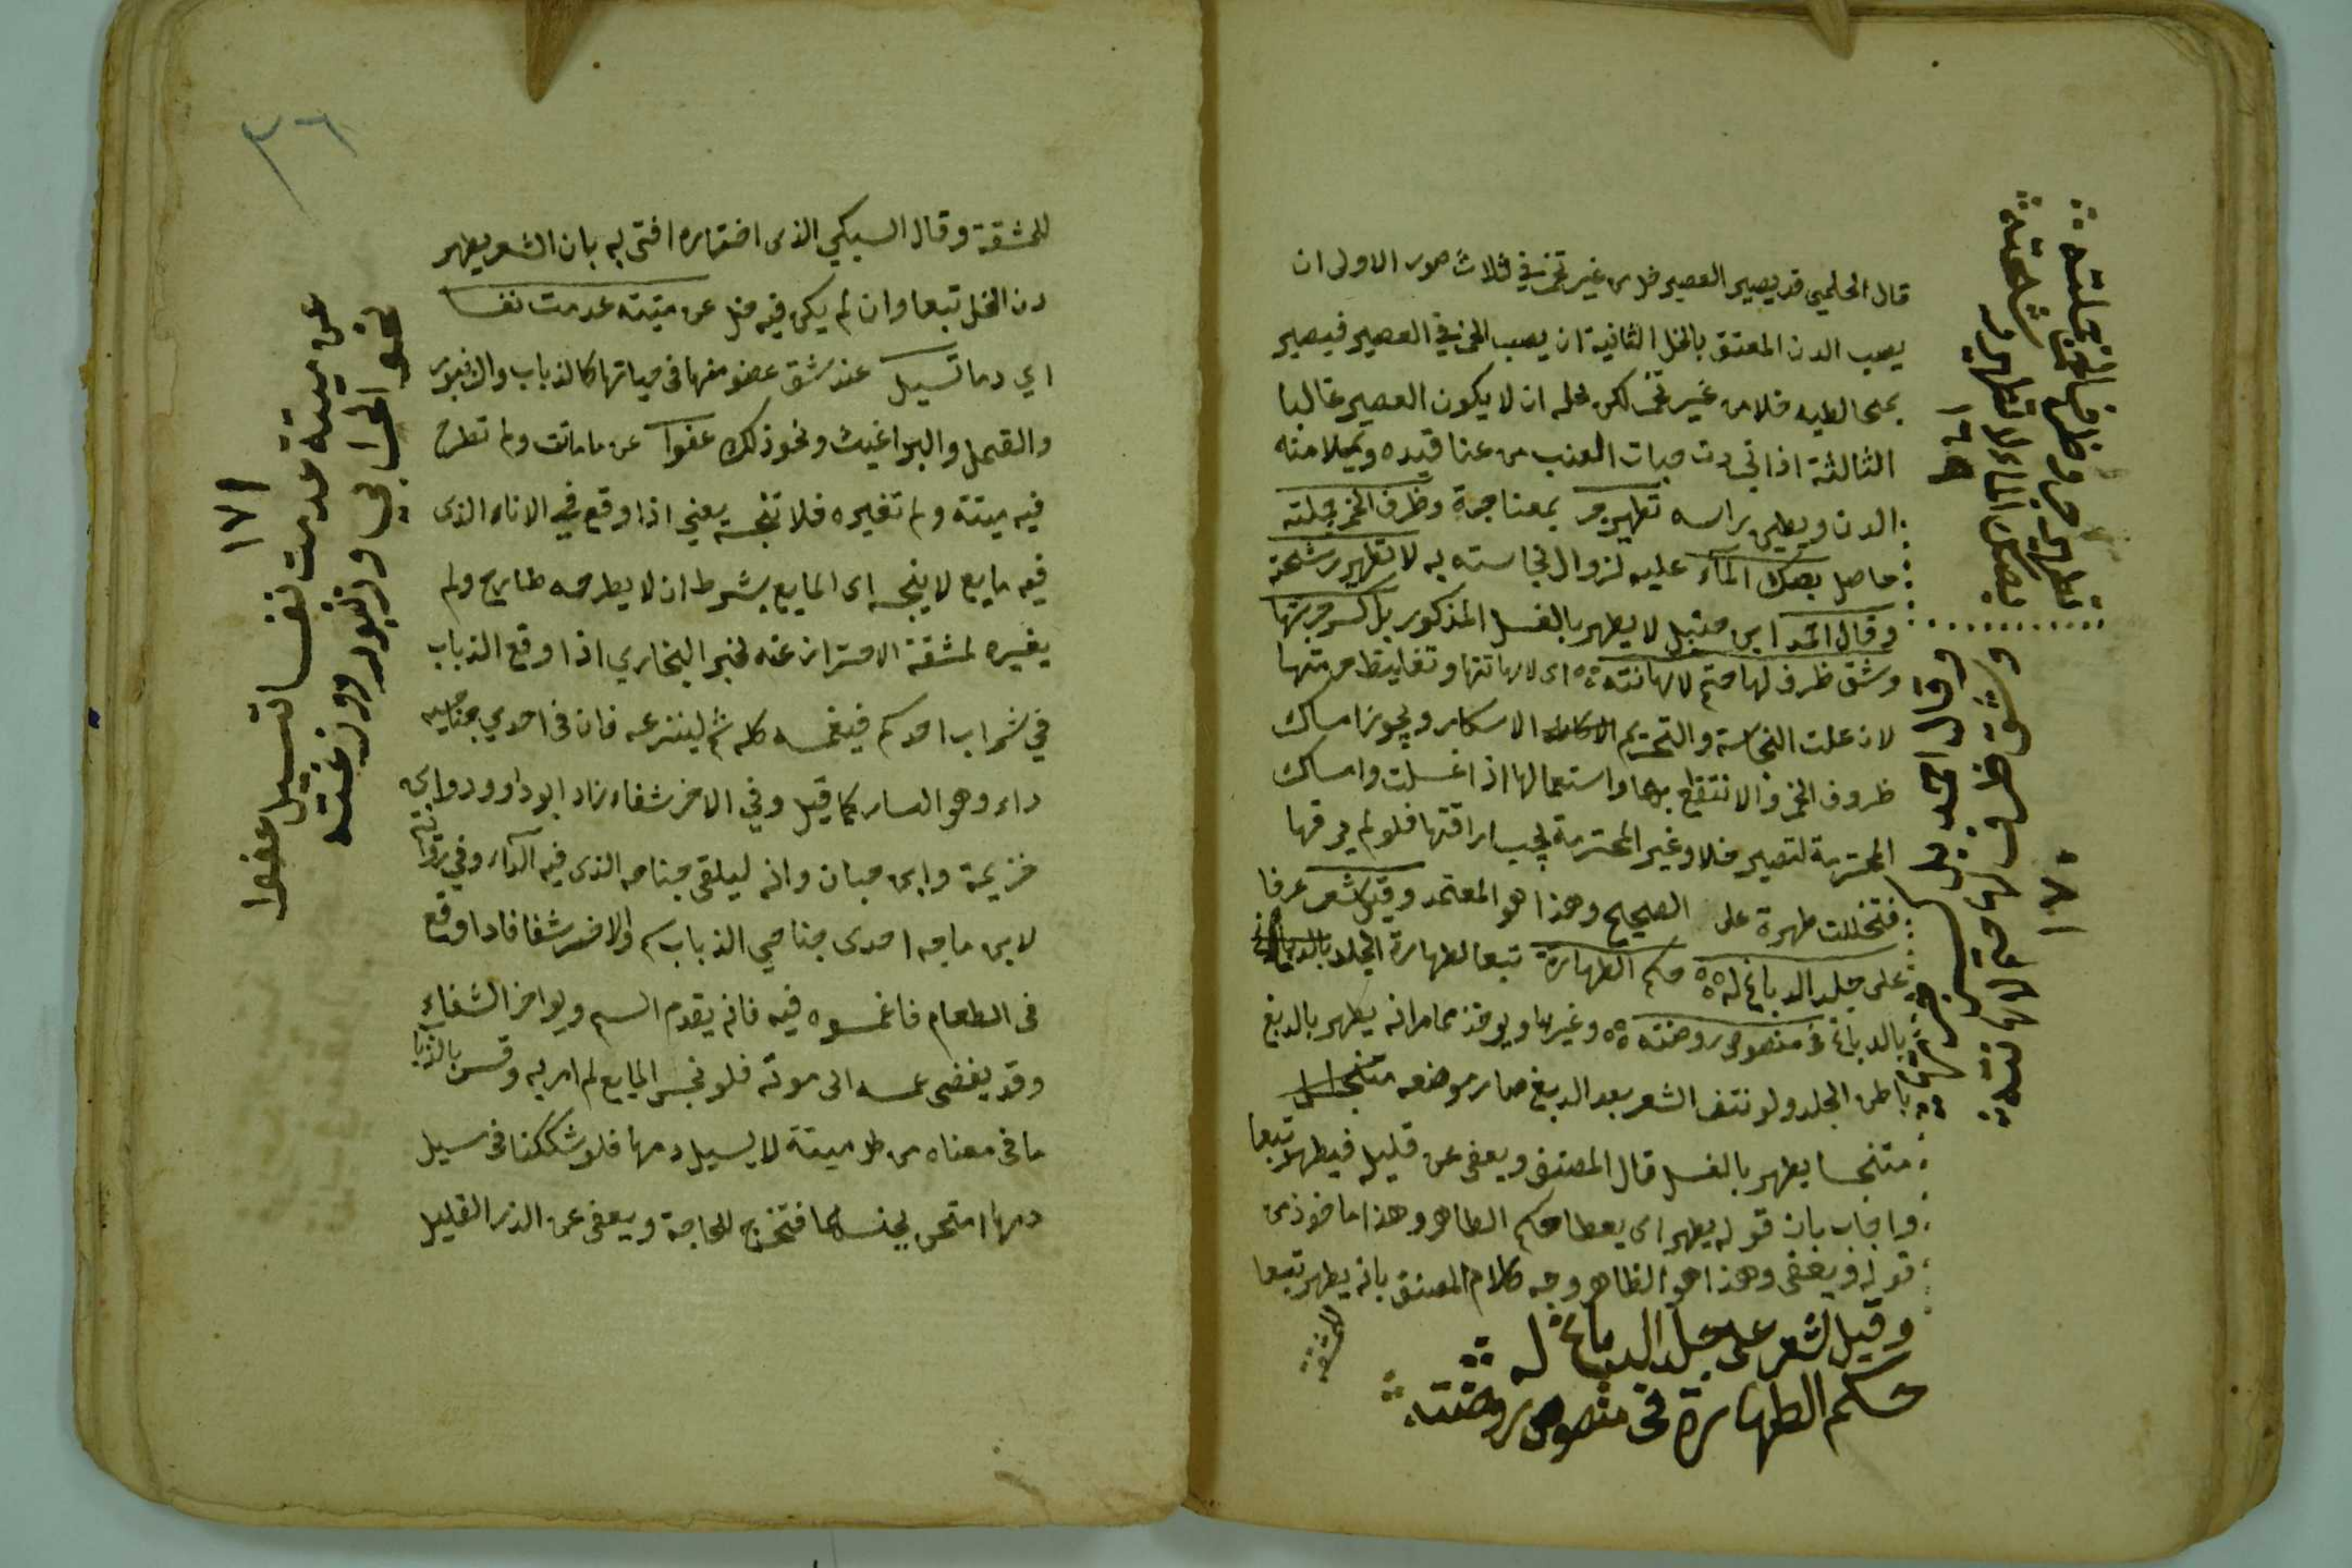 قال الحليمي قد يصير العصير خل من غير تخمر في ثلاث صور الاولى ان
يصب الدن المعتق بالخل الثانية ان يصب الخل في العصير فيصير
بمخالطيه خلا من غير تخمر لكن محله ان لا يكون العصير غالبا
الثالثة اذا تجردت حبات العنب من عناقيده ويملا منه
الدن ويطين راسه تطهير جر بمعنا جرة وظرف الخمر بجلته
حاصل بصبك الماء عليه لزوال نجاسته به لا تطهير رشحته
وقال احمد ابن حنبل لا يطهر بالغسل المذكور بل كسر جرتها
وشق ظرف لها حتم لاهانته اى لاهانتها وتغليظ حرمتها
لان علت النجاسة والتحريم الاسكار ويجوز امساك
ظروف الخمر والانتفاع بها واستعمالها اذا غسلت وامساك
المحترمة لتصير خلا وغير المحترمة يجب اراقتها فلو لم يرقها
فتخللت طهرة على الصحيح وهذا هو المعتمد وقيل شعر عرفا
على جلد الدباغ له حكم الطهارة تبعا لطهارة الجلد
بالدباغ في منصوص روضته وغيرها ويوخذ مما مر انه يطهر بالدبغ
باطن الجلد ولو نتف الشعر بعد الدبغ صار موضعه
متنجسا يطهر بالغسل قال المصنف ويعفى عن قليل فيطهر تبعا
واجاب بان قوله يطهر اى يعطا حكم الطاهر وهذا ماخوذ من
قوله ويعفى وهذا هو الظاهر وجه كلام المصنف بانه يطهر تبعا
للمشقة
وقيل لشعر على جلد الدباغ له
حكم الطهارة في منصوص روضته
تطهير جر وظرف الخمر بجلته
بصبك الماء لا تطهير رشحته
١٦٩
وقال احمد بل كسر جرتها
وشق ظرف لها حتم لاهانته
١٧٠
٣٦
للمشقة وقال السبكي الذى اختاره افتى به بان الشعر يطهر
دن الخل تبعا وان لم يكن فيه خل عن ميتته عدمت نفسا
اي دما تسيل عند شق عضو منها فى حياتها كالذباب والزنبور
والقمل والبراغيث ونحو ذلك عفوا عن ما ماتت ولم تطرح
فيه ميتة ولم تغيره فلا تنجسه يعني اذا وقع في الاناء الذى
فيه مايع لا ينجسه اى المايع بشرط ان لا يطرحه طارح ولم
يغيره لمشقة الاحتراز عنه لخبر البخاري اذا وقع الذباب
في شراب احدكم فيغمسه كله ثم لينزعه فان فى احدى جناحيه
داء وهو اليسار كما قيل وفي الاخر شفاء زاد ابو داوود وابن
خزيمة وابن حبان وانه ليتقي بجناحه الذى فيه الداء وفي رواية
لابن ماجه احدى جناحي الذباب سم والاخر شفا فاذا وقع
فى الطعام فاغمسوه فيه فانه يقدم السم ويواخر الشفاء
وقد يفضى غمسه الى موته فلو نجس المايع لم امر به وقس بالذباب
ما فى معناه من كل ميتة لا يسيل دمها فلو شككنا فى سيل
دمها امتحن بجنسها فتجرح للحاجة ويعفى عن النزر القليل
عن ميتة عدمت نفسا تسيل عفوا
نحو الخنا في وزنبور ووزغته
١٧١